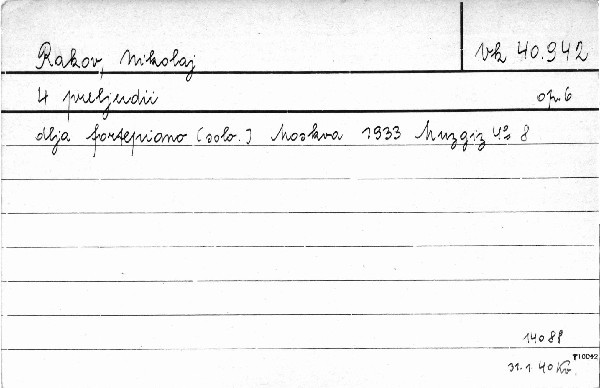 Rakov, Nikolaj Vk 40.942
4 preljudii op. 6
dlja fortepiano (solo.) Moskva 1933 Muzgiz 4° 8
14088
T10042
31.1.40 Kv.